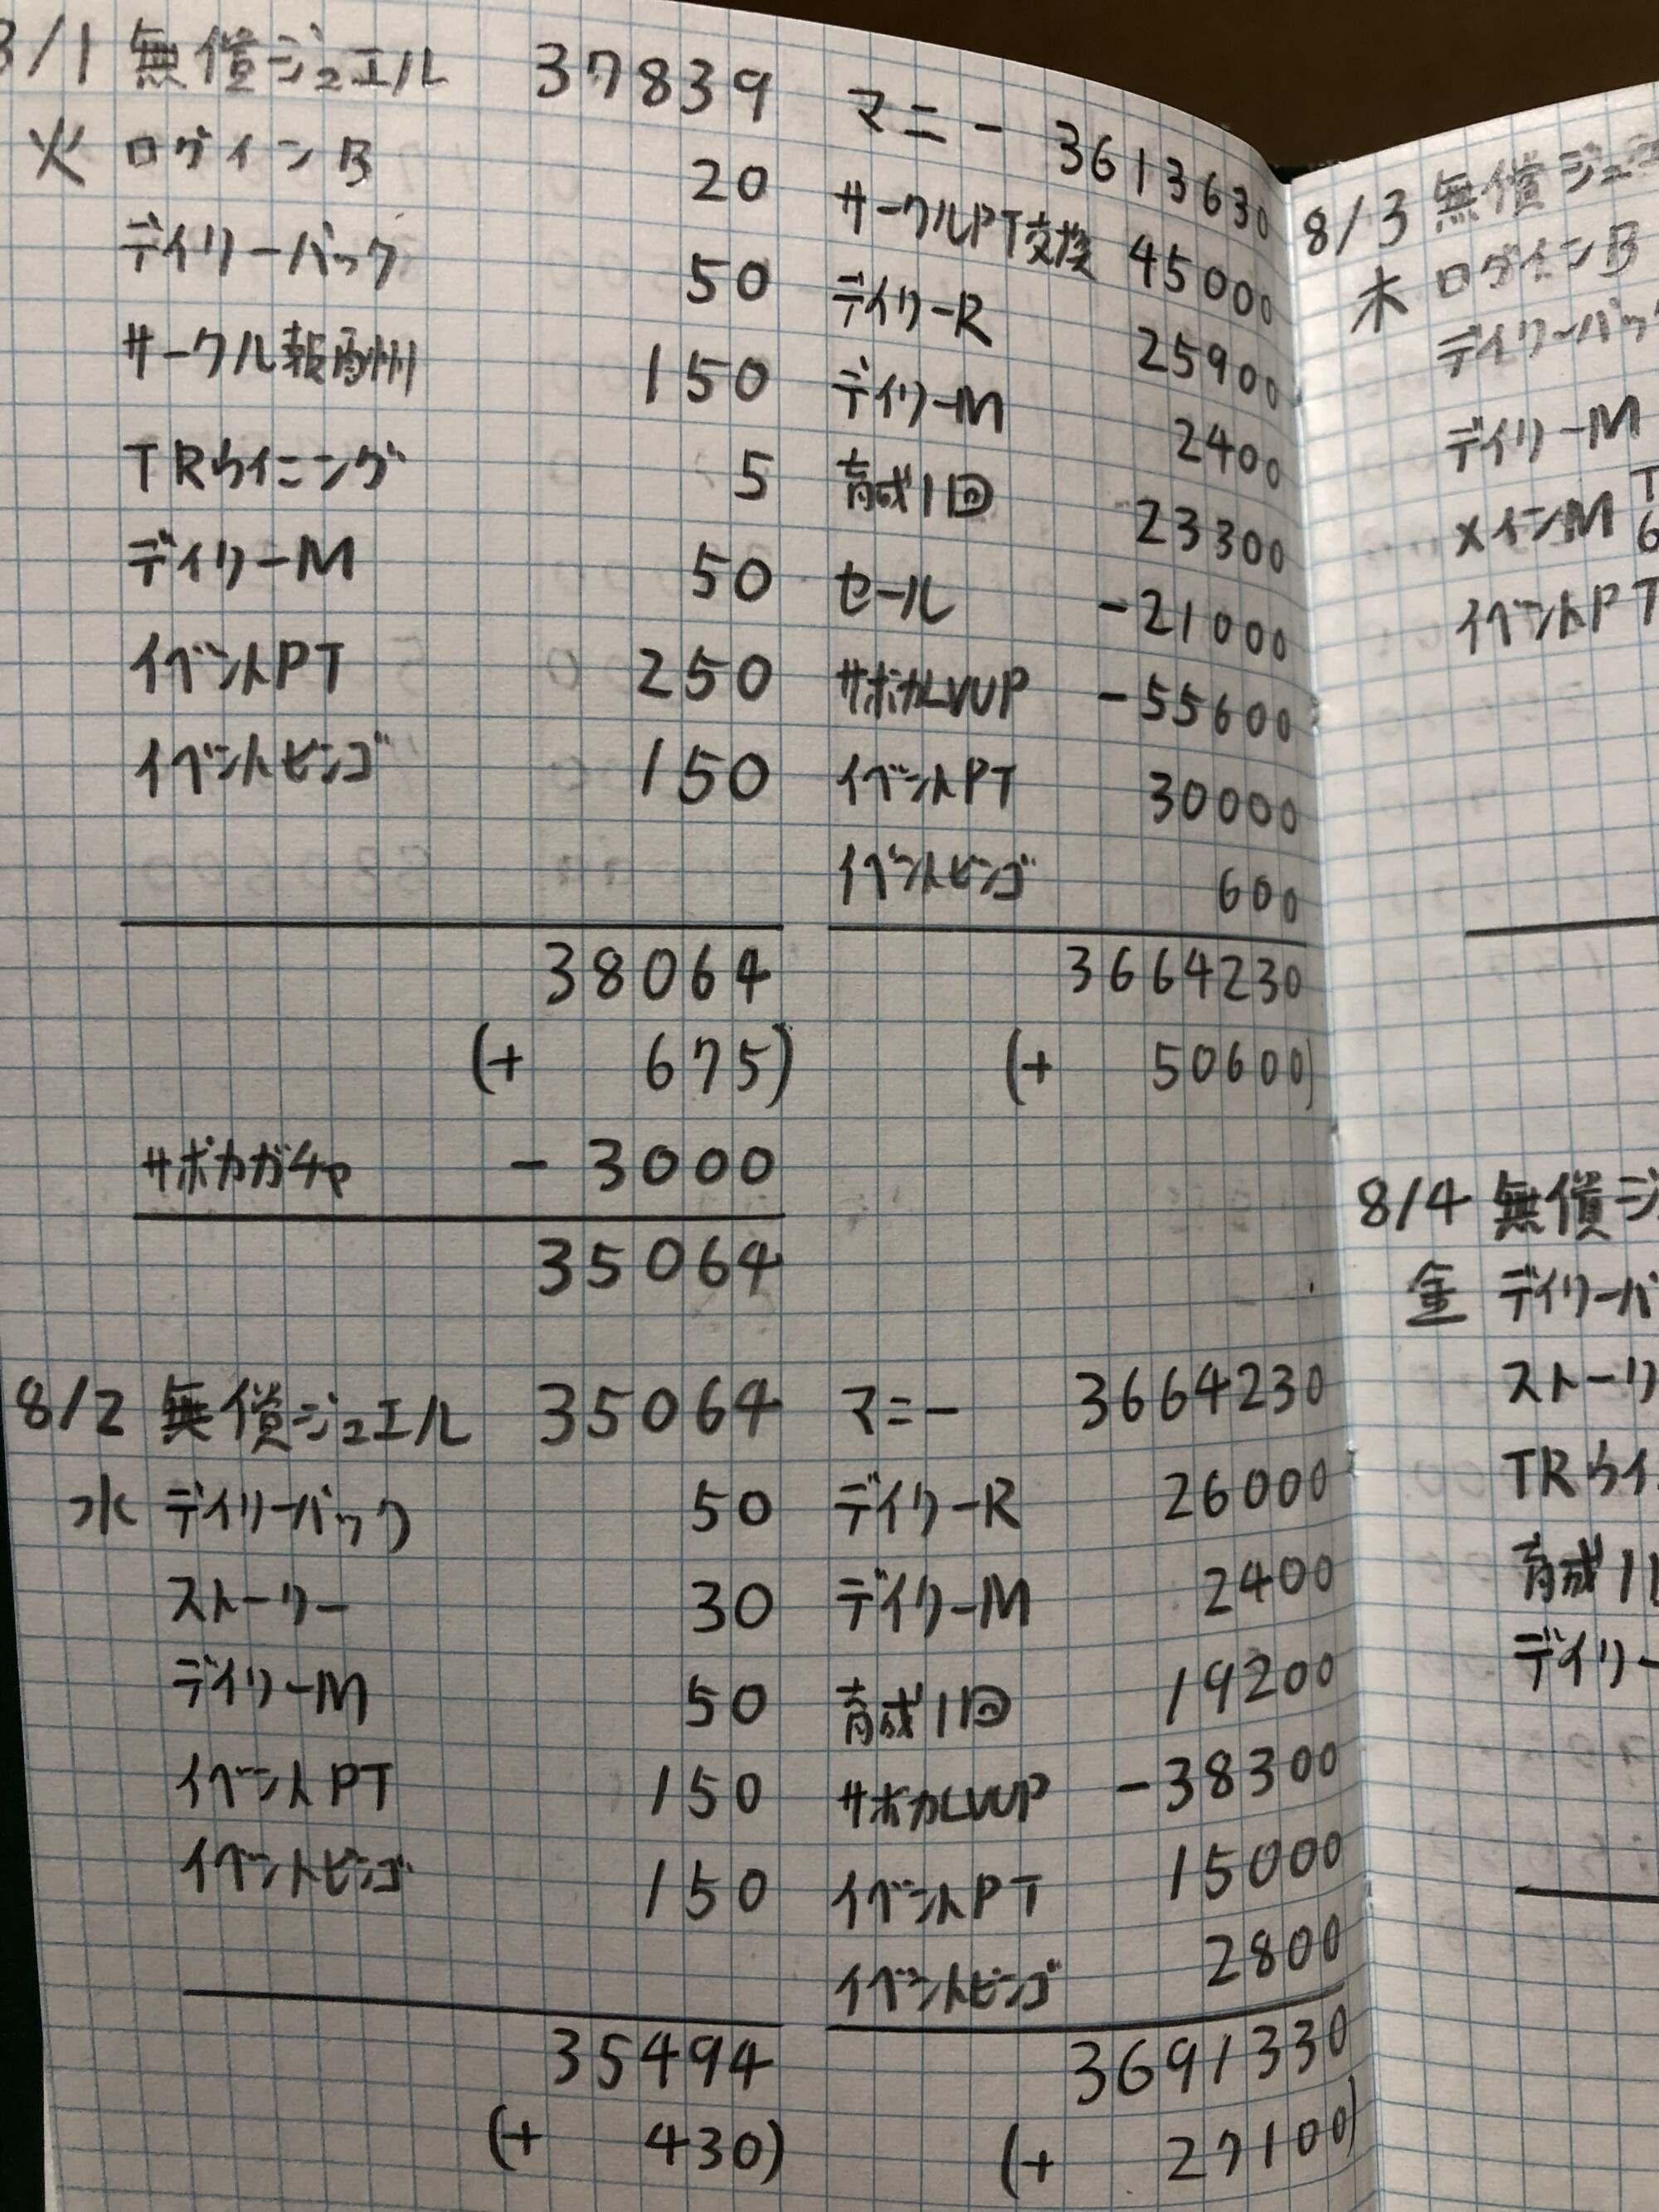 8/1 無償ジュエル 37839
火 ログインB 20
デイリーパック 50
サークル報酬 150
TRウイニング 5
デイリーM 50
イベントPT 250
イベントビンゴ 150
38064
(+ 675)
サポカガチャ -3000
35064
マニー 3613630
サークルPT交換 45000
デイリーR 25900
デイリーM 2400
育成1回 23300
セール -21000
サポカLVUP -55600
イベントPT 30000
イベントビンゴ 600
3664230
(+ 50600)
8/2 無償ジュエル 35064
水 デイリーパック 50
ストーリー 30
デイリーM 50
イベントPT 150
イベントビンゴ 150
35494
(+ 430)
マニー 3664230
デイリーR 26000
デイリーM 2400
育成1回 19200
サポカLVUP -38300
イベントPT 15000
イベントビンゴ 2800
3691330
(+ 27100)
8/3 無償ジュ
木 ログインB
デイリーパッ
デイリーM
メインM
イベントPT
8/4 無償ジ
金 デイリーパ
ストーリ
TRウイ
育成1
デイリー